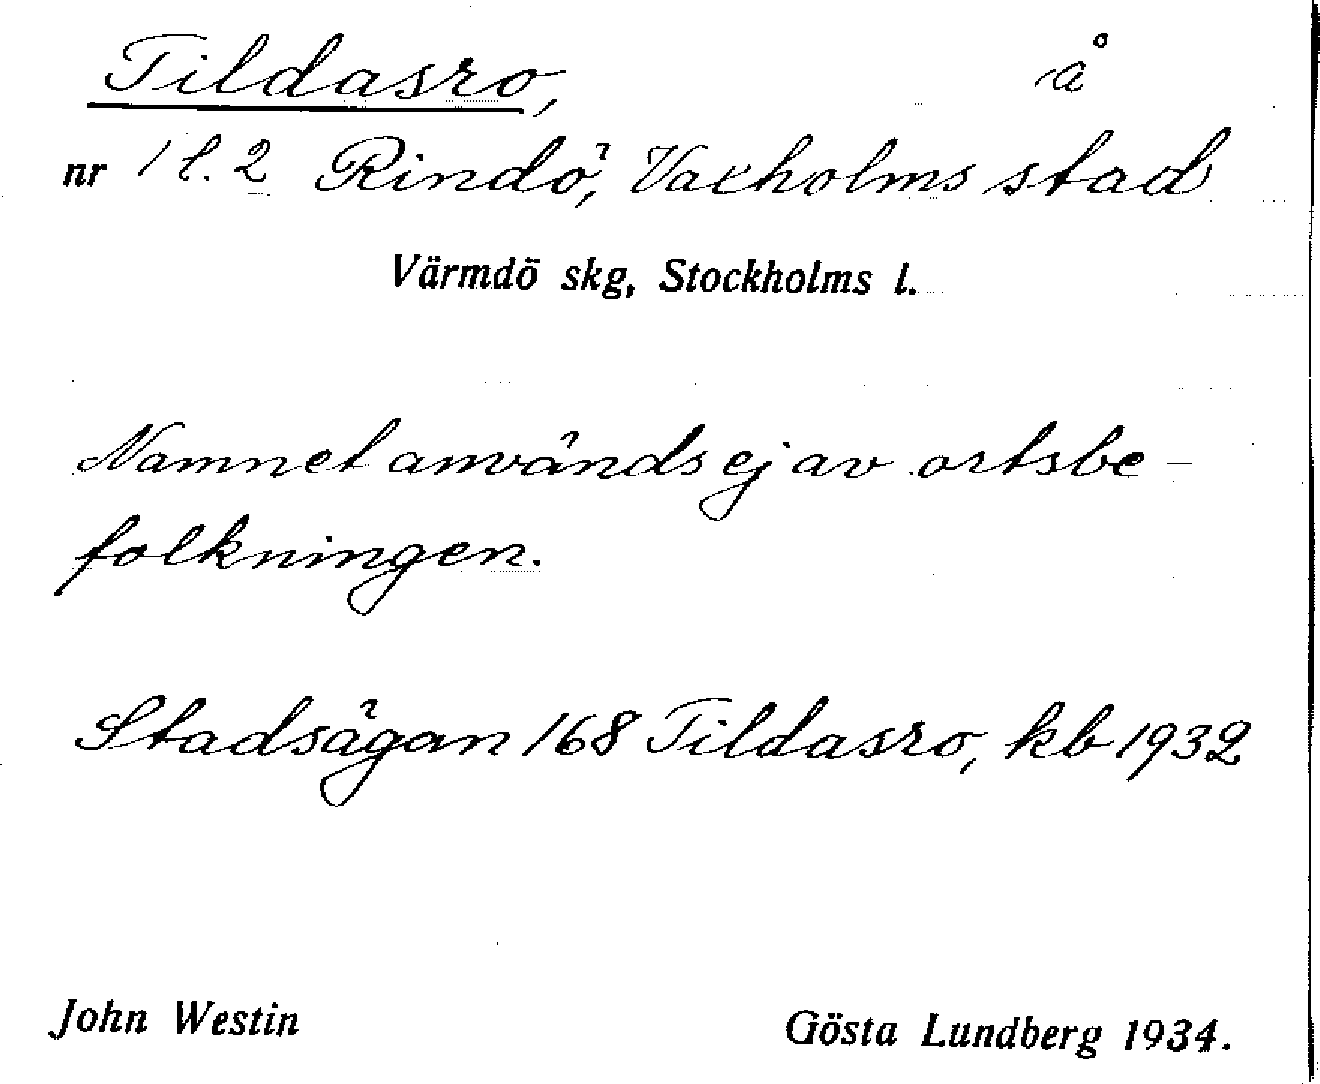 Tildasro, å
nr 1 l. 2 Rindö, Vaxholms stad
Värmdö skg, Stockholms l.
Namnet används ej av ortsbe-
folkningen.
Stadsägan 168 Tildasro, kb 1932
John Westin Gösta Lundberg 1934.